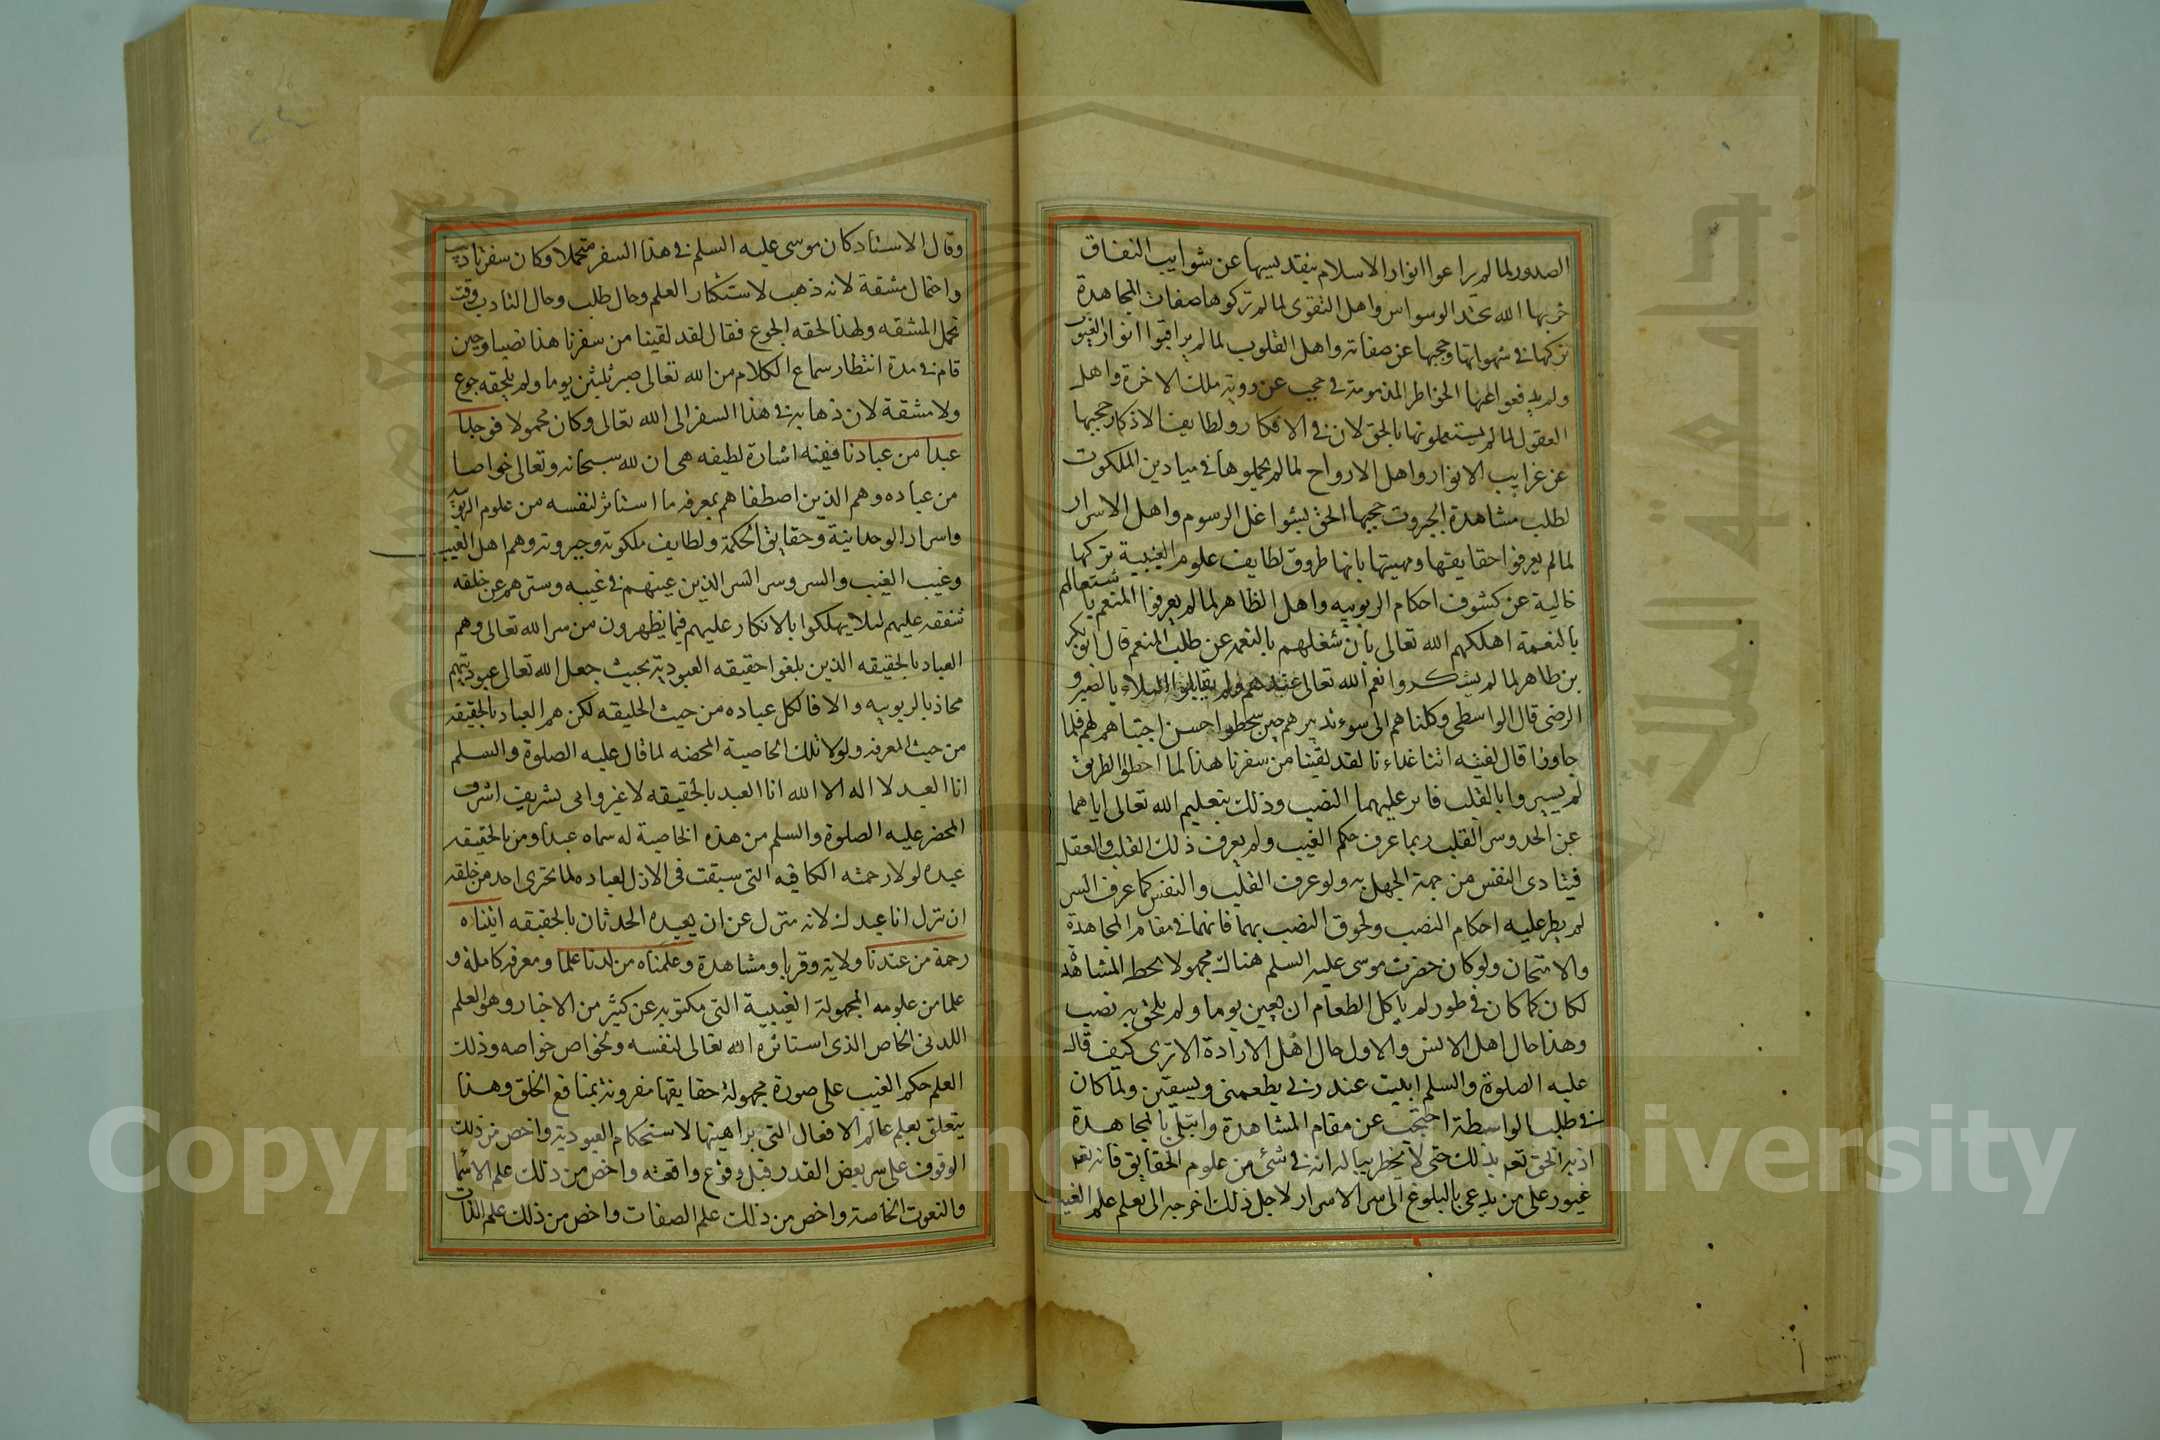 الصدور لما لم يراعوا انوار الاسلام بتقديسها عن شوايب النفاق
خربها الله بحند الوسواس واهل التقوى لما لم تركوها صفات المجاهدة
تركها في شهواتها وحجبها عن صفاته واهل القلوب لما لم يراقبوا انوار الغيوب
ولم يدفعوا عنها الخواطر المذمومة في حجب عن روية ملك الاخرة واهل
العقول لما لم يستعملونها بالحق لان في الافكار ولطايف الاذكار حجبها
عن غرايب الانوار واهل الارواح لما لم يخلوها في ميادين الملكوت
لطلب مشاهدة الجبروت حجبها الحق بشواغل الرسوم واهل الاسرار
لما لم يعرفوا حقايقها ومهيتها بانها طروق لطايف علوم الغيبية تركها
خالية عن كشوف احكام الربوبيه واهل الظاهر لما لم يعرفوا المنعم باستعمالهم
بالنعمة اهلكهم الله تعالى بان شغلهم بالنعم عن طلب المنعم قال ابو بكر
بن طاهر لما لم يشكروا نعم الله تعالى عندهم ولم يقابلوا البلاء بالصبر و
الرضى قال الواسطى وكلناهم الى سوء تدبيرهم حين سخطوا حسن اجتباهم لهم فلما
جاوزا قال لفتيه اتنا غداءنا لقد لقينا من سفرنا هذا لما اخطؤا الطريق
لم يسيروا بالقلب فاثر عليهما النصب وذلك بتعليم الله تعالى اياهما
عن الحد وسر القلب ربما عرف حكم الغيب ولم يعرف ذلك القلب والعقل
فيتاذى النفس من جهة الجهل به ولو عرف القلب والنفس كما عرف السر
لم يطر عليه احكام النصب ولحوق النصب بهما فانهما في مقام المجاهدة
والامتحان ولو كان حضرت موسى عليه السلم هناك محمولا بحظ المشاهدة
لكان كما كان في طور لم ياكل الطعام اربعين يوما ولم يلحق به نصب
وهذا حال اهل الانس والاول حال اهل الارادة الا ترى كيف قال
عليه الصلوة والسلم ابيت عند ربى يطعمنى ويسقين ولما كان
في طلب الواسطة احتجب عن مقام المشاهدة وابتلى بالمجاهدة
ادبه الحق تعم بذلك حتى لا يخطر بباله انه في شئ من علوم الحقايق فانه تعم
غيور على من يدعى بالبلوغ الى سر الاسرار لاجل ذلك اخرجه الى تعلم علم الغيب
وقال الاستاد كان موسى عليه السلم في هذا السفر متحملا وكان سفر تاديب
واحتمال مشقة لانه ذهب لاستكثار العلم وحال طلب وحال التاديب وقت
تحمل المشقه ولهذا لحقه الجوع فقال لقد لقينا من سفرنا هذا نصبا وحين
قام في مدة انتظار سماع الكلام من الله تعالى صبر ثلثين يوما ولم يلحقه جوع
ولا مشقة لان ذهابه في هذا السفر الى الله تعالى وكان محمولا فوجدا
عبدا من عبادنا فيه اشارة لطيفه هى ان لله سبحانه وتعالى خواصا
من عباده وهم الذين اصطفاهم بمعرفه ما استاثر لنفسه من علوم الربوبية
واسرار الوحدانية وحقايق الحكمة ولطايف ملكوته وجبروته وهم اهل الغيب
وغيب الغيب والسر وسر السر الذين غيبهم في غيبه وسترهم عن خلقه
شفقه عليهم لئلا يهلكوا بالانكار عليهم فيما يظهرون من سر الله تعالى وهم
العباد بالحقيقه الذين بلغوا حقيقه العبودية بحيث جعل الله تعالى عبوديتهم
محاذ بالربوبيه والا فالكل عباده من حيث الخليقه لكن هم العباد بالحقيقه
من حيث المعرفه ولولا تلك الخاصية المحضه لما قال عليه الصلوة والسلم
انا العبد لا اله الا الله انا العبد بالحقيقه لا غير وابى بشريف اشرف
الخضر عليه الصلوة والسلم من هذه الخاصية له سماه عبدا ومن بالحقيقه
عبده لولا رحمته الكافيه التى سبقت فى الازل لعباده لما يجترى احد من خلقه
ان يقول انا عبدك لانه منزل عن ان يعبده الحدثان بالحقيقه اتيناه
رحمة من عندنا ولاية وقربا ومشاهدة وعلمناه من لدنا علما ومعرفه كاملة و
علما من علومه المجهولة الغيبية التى مكتوبه عن كثير من الاخيار وهو العلم
اللدنى الخاص الذى استاثره الله تعالى لنفسه ولخواص خواصه وذلك
العلم حكم الغيب على صورة مجهولة حقايقها مقرونة بمنافع الخلق وهذا
يتعلق بعلم عالم الافعال التى براهينها لاستحكام العبودية واخص من ذلك
الوقوف على سر بعض القدر قبل وقوع واقعته واخص من ذلك علم الاسماء
والنعوت الخاصة واخص من ذلك علم الصفات واخص من ذلك علم الذات
Copyright © King Saud University
جامعة الملك سعود